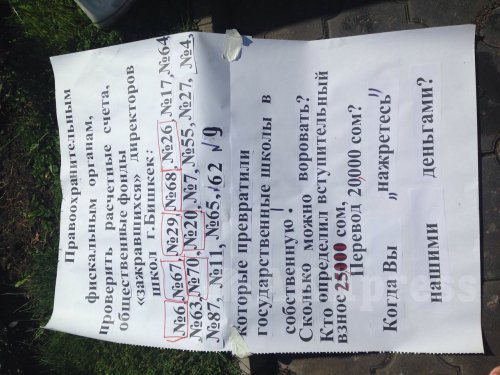 Правоохранительным
фискальным органам,
Проверить расчетные счета,
общественные фонды
«зажравшихся» директоров
школ г.Бишкек:
№6, №67, №29, №68, №26, №17, №64,
№63, №70, №20, №7, №55, №27, №4,
№87, №11, №65, /62 √9
которые превратили
государственные школы в
собственную.
Сколько можно воровать?
Кто определил вступительный
взнос 25000 сом,
Перевод 20000 сом?
Когда Вы „нажретесь"
нашими деньгами?